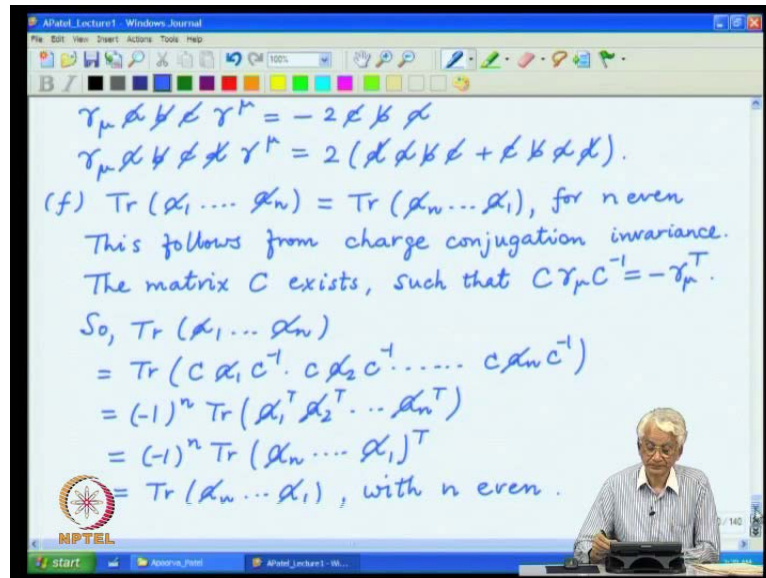 APatel_Lecture1 - Windows Journal
File Edit View Insert Actions Tools Help
100%
B I
γ_μ a̸ b̸ c̸ γ^μ = -2 c̸ b̸ a̸
γ_μ a̸ b̸ c̸ d̸ γ^μ = 2 (d̸ a̸ b̸ c̸ + c̸ b̸ a̸ d̸).
(f) Tr (a̸₁ .... a̸ₙ) = Tr (a̸ₙ ... a̸₁), for n even
This follows from charge conjugation invariance.
The matrix C exists, such that C γ_μ C⁻¹ = -γ_μ^T.
So, Tr (a̸₁ ... a̸ₙ)
= Tr (C a̸₁ C⁻¹. C a̸₂ C⁻¹ ...... C a̸ₙ C⁻¹)
= (-1)ⁿ Tr (a̸₁^T a̸₂^T ... a̸ₙ^T)
= (-1)ⁿ Tr (a̸ₙ .... a̸₁)^T
= Tr (a̸ₙ ... a̸₁), with n even.
NPTEL
/ 140
start Apoorva_Patel APatel_Lecture1 - Wi...